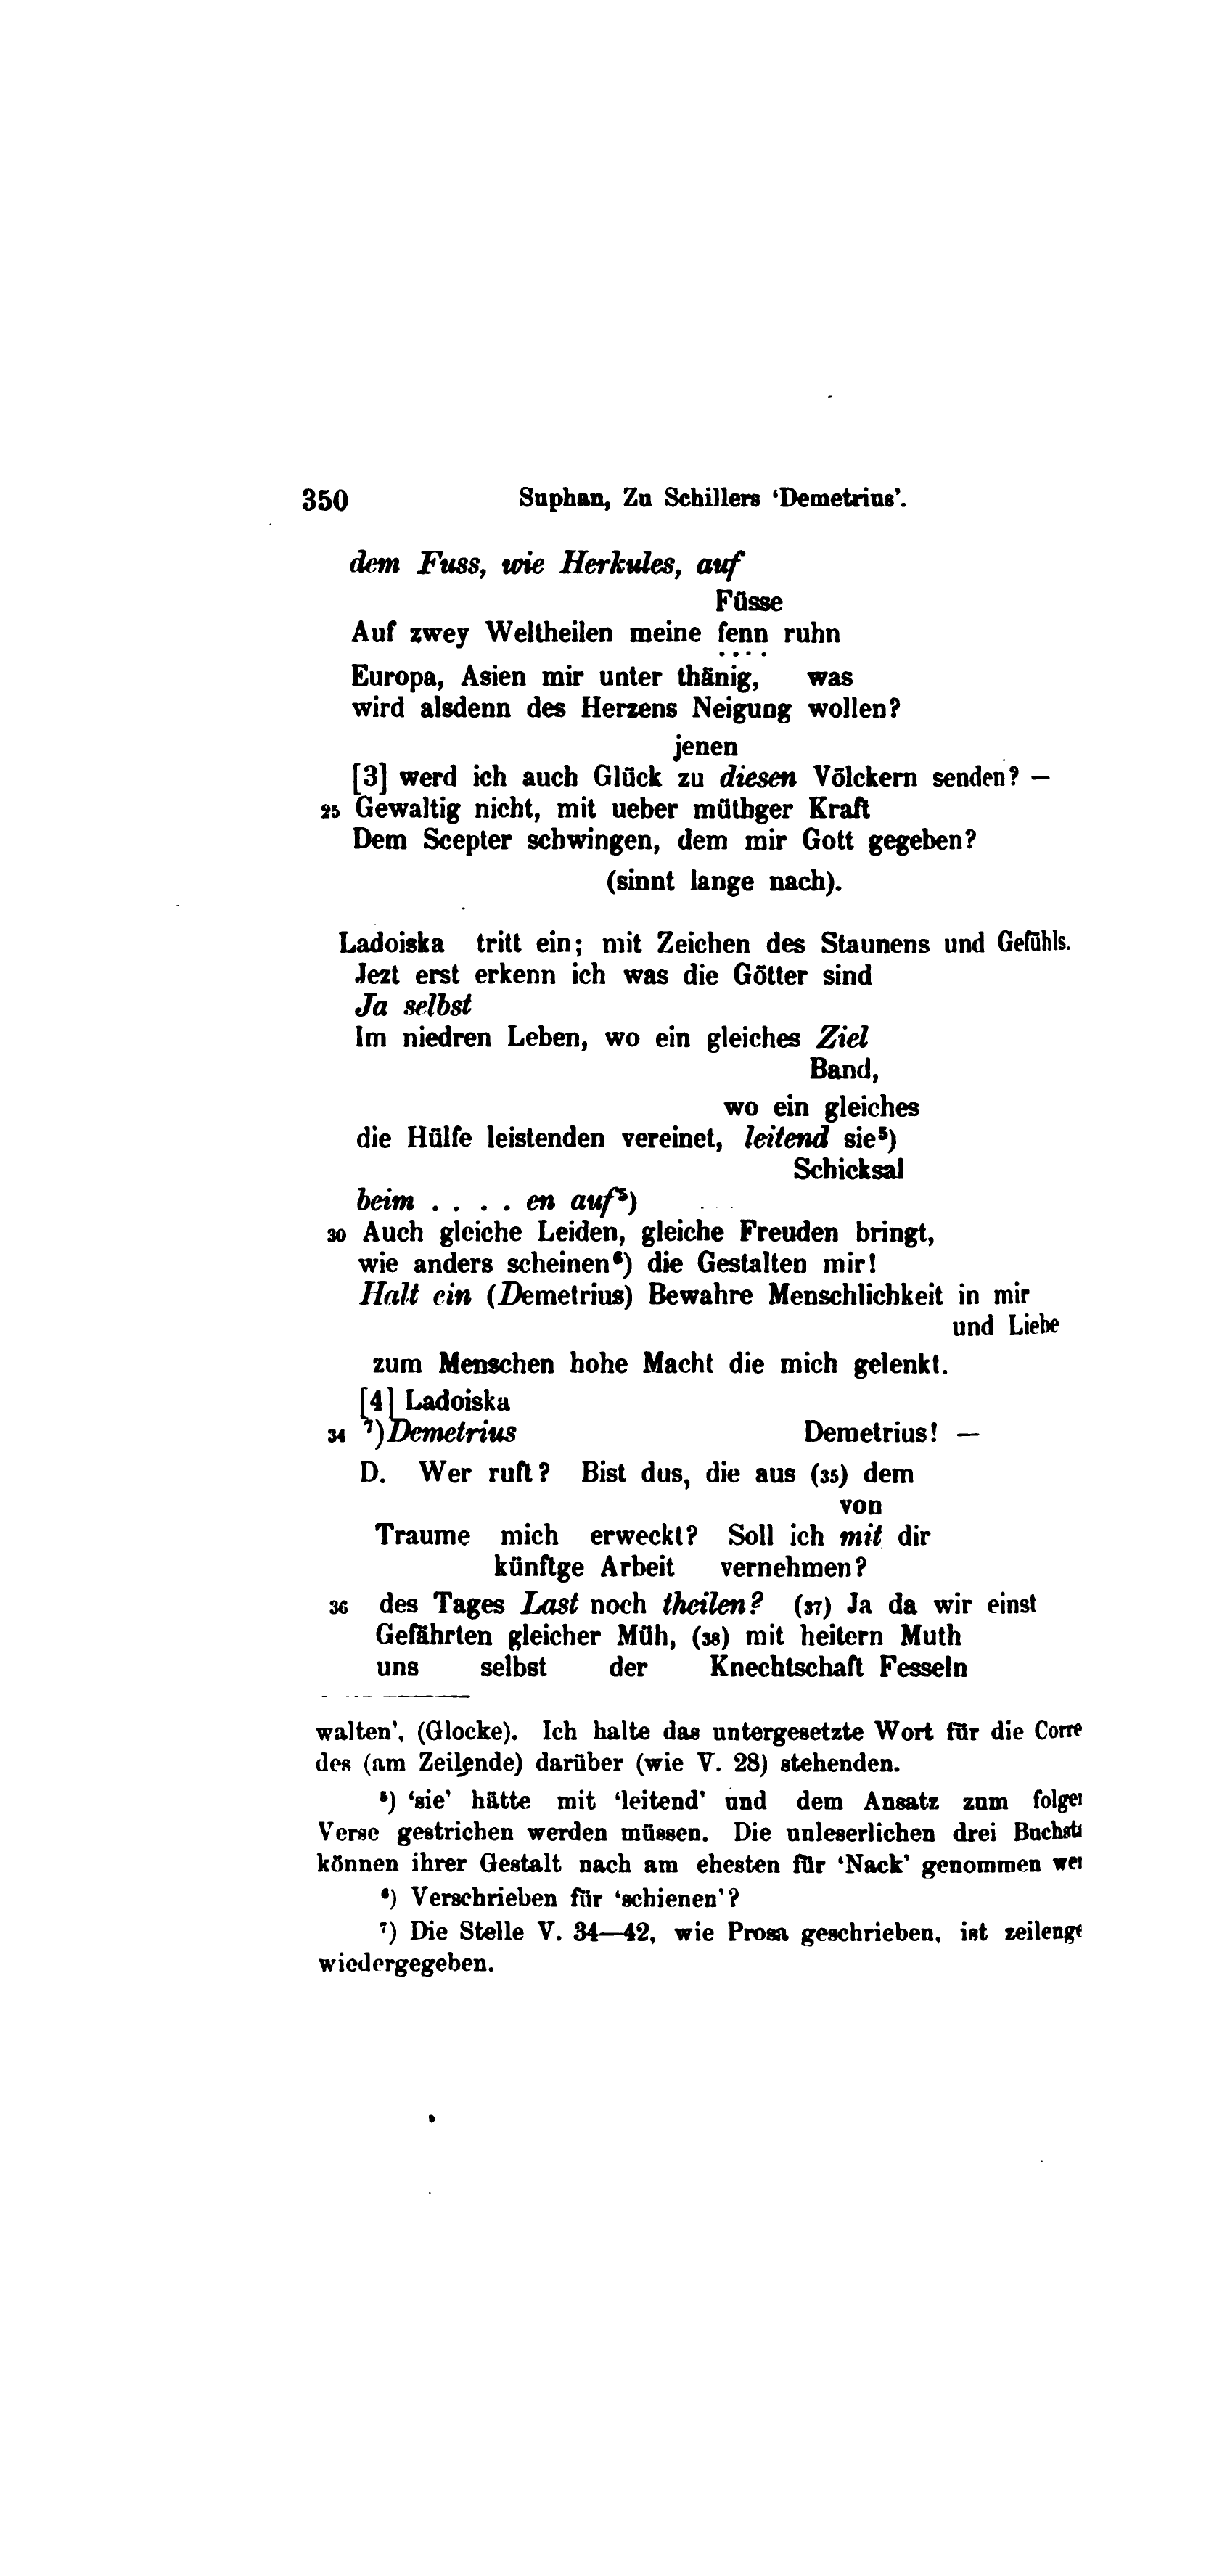 350 Suphan, Zu Schillers ‘Demetrius’.
dem Fuss, wie Herkules, auf
Füsse
Auf zwey Weltheilen meine fenn ruhn
Europa, Asien mir unter thänig, was
wird alsdenn des Herzens Neigung wollen?
jenen
[3] werd ich auch Glück zu diesen Völckern senden? —
25 Gewaltig nicht, mit ueber müthger Kraft
Dem Scepter schwingen, dem mir Gott gegeben?
(sinnt lange nach).
Ladoiska tritt ein; mit Zeichen des Staunens und Gefühls.
Jezt erst erkenn ich was die Götter sind
Ja selbst
Im niedren Leben, wo ein gleiches Ziel
Band,
wo ein gleiches
die Hülfe leistenden vereinet, leitend sie⁵)
Schicksal
beim . . . . en auf⁵)
30 Auch gleiche Leiden, gleiche Freuden bringt,
wie anders scheinen⁶) die Gestalten mir!
Halt ein (Demetrius) Bewahre Menschlichkeit in mir
und Liebe
zum Menschen hohe Macht die mich gelenkt.
[4] Ladoiska
34 ⁷) Demetrius Demetrius! —
D. Wer ruft? Bist dus, die aus (35) dem
von
Traume mich erweckt? Soll ich mit dir
künftge Arbeit vernehmen?
36 des Tages Last noch theilen? (37) Ja da wir einst
Gefährten gleicher Müh, (38) mit heitern Muth
uns selbst der Knechtschaft Fesseln
walten’, (Glocke). Ich halte das untergesetzte Wort für die Corre
des (am Zeilende) darüber (wie V. 28) stehenden.
⁵) ‘sie’ hätte mit ‘leitend’ und dem Ansatz zum folge
Verse gestrichen werden müssen. Die unleserlichen drei Buchst
können ihrer Gestalt nach am ehesten für ‘Nack’ genommen we
⁶) Verschrieben für ‘schienen’?
⁷) Die Stelle V. 34—42, wie Prosa geschrieben, ist zeileng
wiedergegeben.